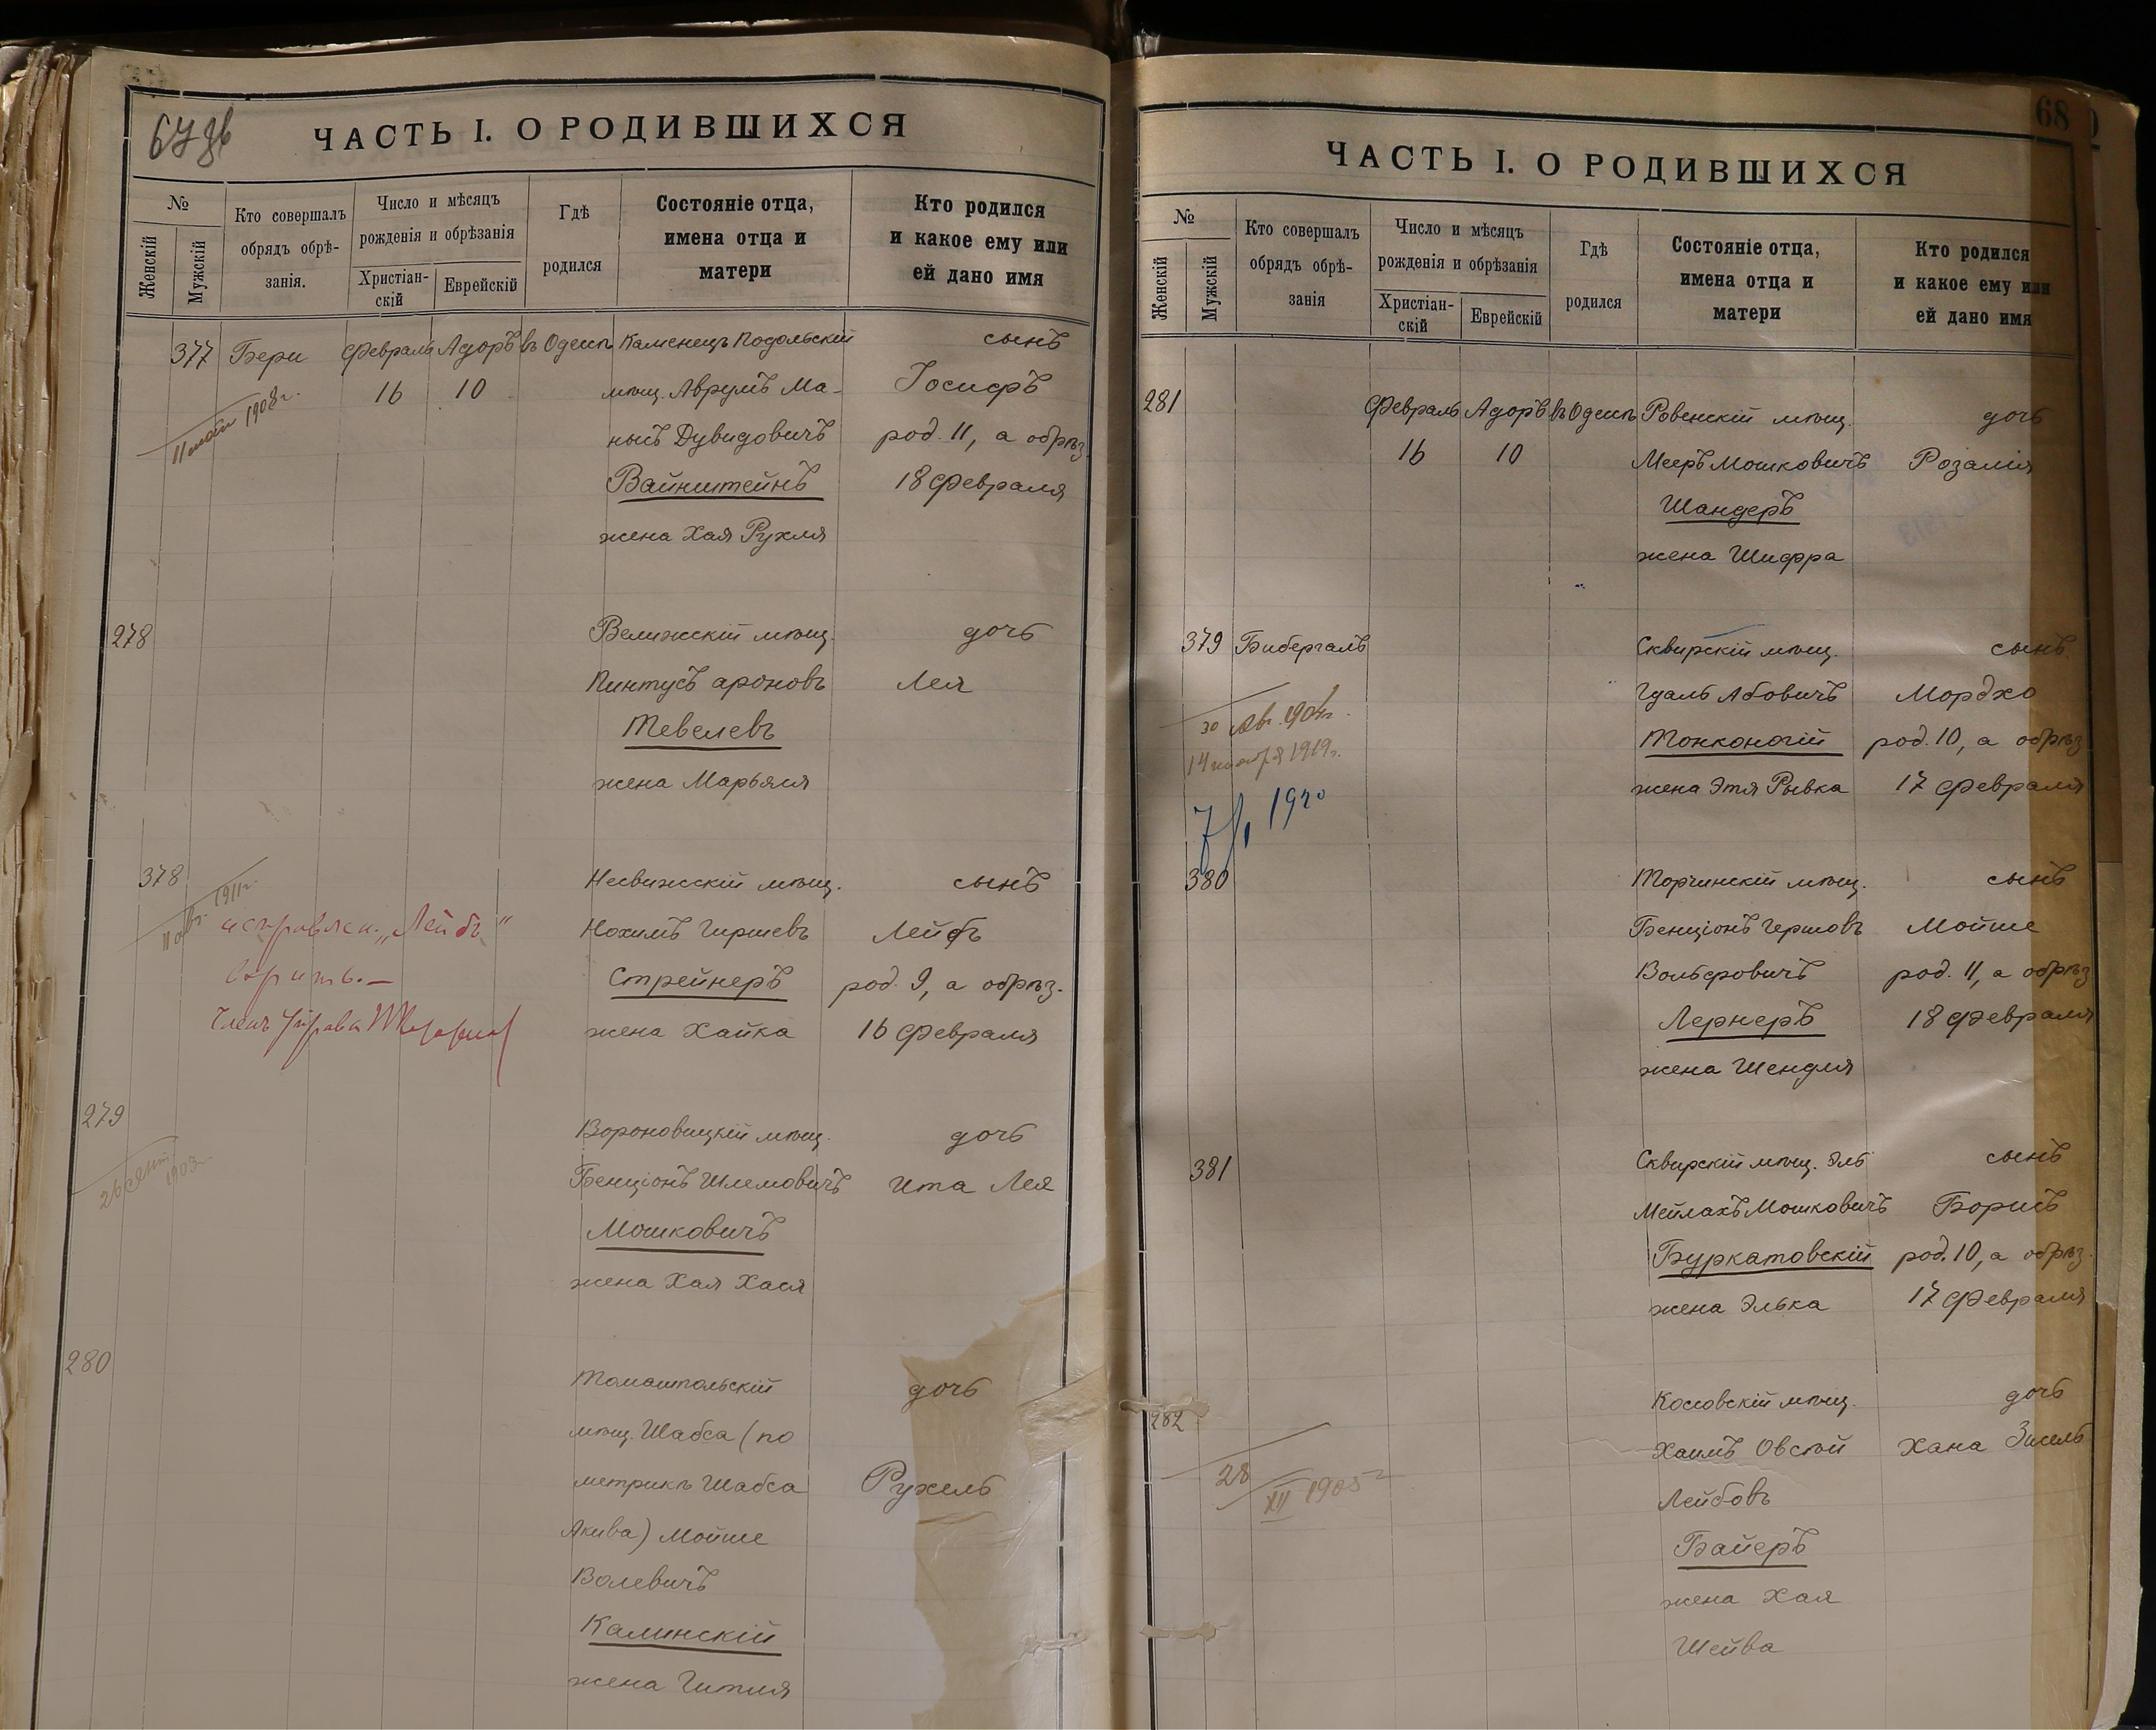 67 об
ЧАСТЬ I. О РОДИВШИХСЯ
№
Женскій
Мужскій
Кто совершалъ
обрядъ обрѣ-
занія.
Число и мѣсяцъ
рожденія и обрѣзанія
Христіан-
скій
Еврейскій
Гдѣ
родился
Состояніе отца,
имена отца и
матери
Кто родился
и какое ему или
ей дано имя
377 Бери Февраль Адоръ въ Одессѣ Каменецъ Подольскій сынъ
16 10 мѣщ. Аврумъ Ма- Іосифъ
11 мая 1908 г.
нысъ Дувидовичъ род. 11, а обрѣз.
Вайнштейнъ 18 Февраля
жена Хая Рухля
278 Велижскій мѣщ. дочь
Пинтусъ ароновъ Лея
Тевелевъ
жена Марьяся
378 Несвижскій мѣщ. сынъ
11 авг. 1911 г.
исправлен. „Лейбъ" Нохимъ Гиршевъ Лейбъ
вѣрить.— Стрейнеръ род. 9, а обрѣз.
Членъ Управы жена Хайка 16 Февраля
279 Вороновицкій мѣщ. дочь
26 сент. 1903 г.
Бенціонъ Шлемовичъ Ита Лея
Мошковичъ
жена Хая Хася
280 Томашпольскій дочь
мѣщ. Шабса (по
метрикѣ Шабса Рухель
Акива) Мойше
Волевичъ
Калинскій
жена Гитля
68
ЧАСТЬ I. О РОДИВШИХСЯ
№
Женскій
Мужскій
Кто совершалъ
обрядъ обрѣ-
занія
Число и мѣсяцъ
рожденія и обрѣзанія
Христіан-
скій
Еврейскій
Гдѣ
родился
Состояніе отца,
имена отца и
матери
Кто родился
и какое ему или
ей дано имя
281 Февраль Адоръ въ Одессѣ Ровенскій мѣщ. дочь
16 10 Мееръ Мошковичъ Розалія
Шандеръ
жена Шифра
379 Бибергалъ Сквирскій мѣщ. сынъ.
Гдаль Абовичъ Мордхо
30 авг. 1904 г.
Тонконогій род. 10, а обрѣз.
14 ноября 1919 г.
жена Этя Рывка 17 Февраля
7/1 1920
380 Торчинскій мѣщ. сынъ
Бенціонъ Гершовъ Мойше
Вольфовичъ род. 11, а обрѣз
Лернеръ 18 Февраля
жена Шендля
381 Сквирскій мѣщ. Эль сынъ
Мейлахъ Мошковичъ Борисъ
Буркатовскій род. 10, а обрѣз.
жена Элька 17 Февраля
282 Косовскій мѣщ. дочь
Хаимъ Овсѣй Хана Зисель
28 XII 1905 г
Лейбовъ
Байеръ
жена Хая
Шейва